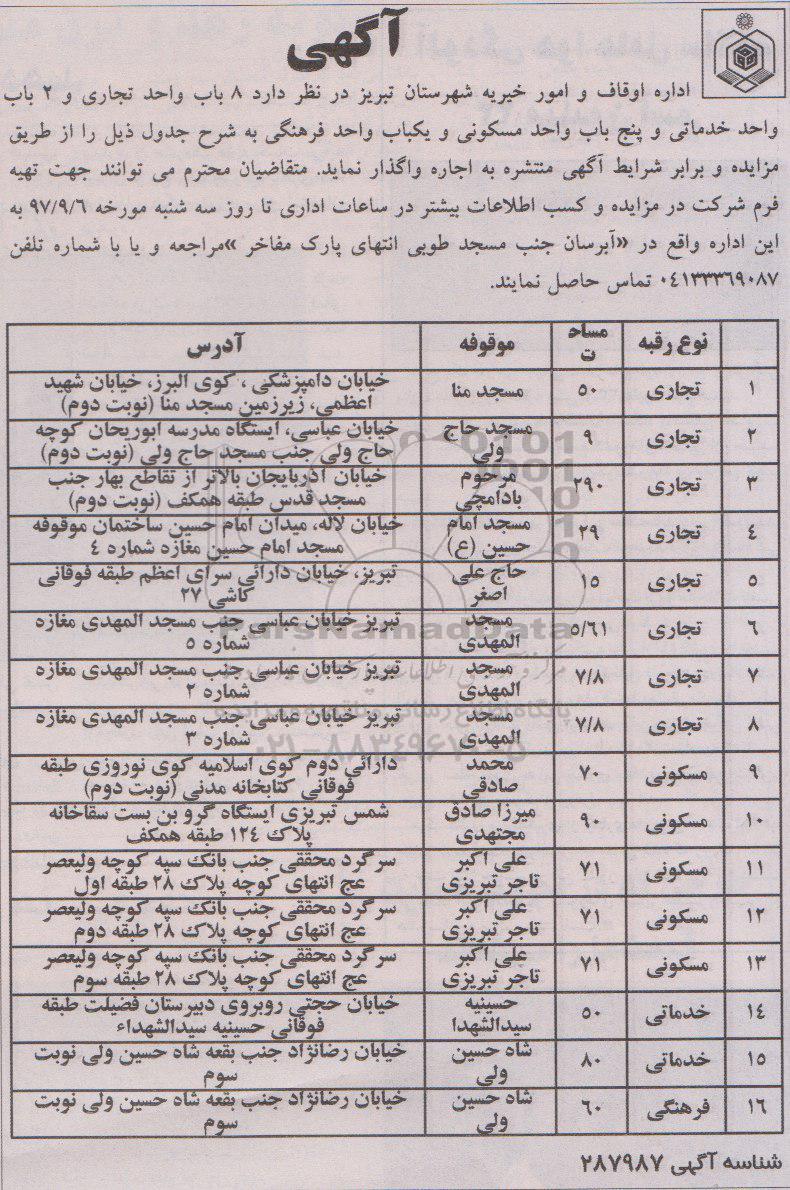 آگهی
اداره اوقاف و امور خیریه شهرستان تبریز در نظر دارد ۸ باب واحد تجاری و ۲ باب
واحد خدماتی و پنج باب واحد مسکونی و یکباب واحد فرهنگی به شرح جدول ذیل را از طریق
مزایده و برابر شرایط آگهی منتشره به اجاره واگذار نماید. متقاضیان محترم می توانند جهت تهیه
فرم شرکت در مزایده و کسب اطلاعات بیشتر در ساعات اداری تا روز سه شنبه مورخه ۹۷/۹/۶ به
این اداره واقع در «آبرسان جنب مسجد طوبی انتهای پارک مفاخر »مراجعه و یا با شماره تلفن
۰٤۱۳۳۳٦۹۰۸۷ تماس حاصل نمایند.
نوع رقبه مساحت موقوفه آدرس
۱ تجاری ۵۰ مسجد منا خیابان دامپزشکی ، کوی البرز، خیابان شهید
اعظمی، زیرزمین مسجد منا (نوبت دوم)
۲ تجاری ۹ مسجد حاج ولی خیابان عباسی، ایستگاه مدرسه ابوریحان کوچه
حاج ولی جنب مسجد حاج ولی (نوبت دوم)
۳ تجاری ۲۹۰ مرحوم بادامچی خیابان آذربایجان بالاتر از تقاطع بهار جنب
مسجد قدس طبقه همکف (نوبت دوم)
٤ تجاری ۲۹ مسجد امام حسین (ع) خیابان لاله، میدان امام حسین ساختمان موقوفه
مسجد امام حسین مغازه شماره ٤
۵ تجاری ۱۵ حاج علی اصغر تبریز، خیابان دارائی سرای اعظم طبقه فوقانی
کاشی ۲۷
٦ تجاری ۵/٦۱ مسجد المهدی تبریز خیابان عباسی جنب مسجد المهدی مغازه
شماره ۵
۷ تجاری ۷/۸ مسجد المهدی تبریز خیابان عباسی جنب مسجد المهدی مغازه
شماره ۲
۸ تجاری ۷/۸ مسجد المهدی تبریز خیابان عباسی جنب مسجد المهدی مغازه
شماره ۳
۹ مسکونی ۷۰ محمد صادقی دارائی دوم کوی اسلامیه کوی نوروزی طبقه
فوقانی کتابخانه مدنی (نوبت دوم)
۱۰ مسکونی ۹۰ میرزا صادق مجتهدی شمس تبریزی ایستگاه گرو بن بست سقاخانه
پلاک ۱۲٤ طبقه همکف
۱۱ مسکونی ۷۱ علی اکبر تاجر تبریزی سرگرد محققی جنب بانک سپه کوچه ولیعصر
عج انتهای کوچه پلاک ۲۸ طبقه اول
۱۲ مسکونی ۷۱ علی اکبر تاجر تبریزی سرگرد محققی جنب بانک سپه کوچه ولیعصر
عج انتهای کوچه پلاک ۲۸ طبقه دوم
۱۳ مسکونی ۷۱ علی اکبر تاجر تبریزی سرگرد محققی جنب بانک سپه کوچه ولیعصر
عج انتهای کوچه پلاک ۲۸ طبقه سوم
۱٤ خدماتی ۵۰ حسینیه سیدالشهدا خیابان حجتی روبروی دبیرستان فضیلت طبقه
فوقانی حسینیه سیدالشهداء
۱۵ خدماتی ۸۰ شاه حسین ولی خیابان رضانژاد جنب بقعه شاه حسین ولی نوبت
سوم
۱٦ فرهنگی ٦۰ شاه حسین ولی خیابان رضانژاد جنب بقعه شاه حسین ولی نوبت
سوم
شناسه آگهی ۲۸۷۹۸۷
ParsNamadData